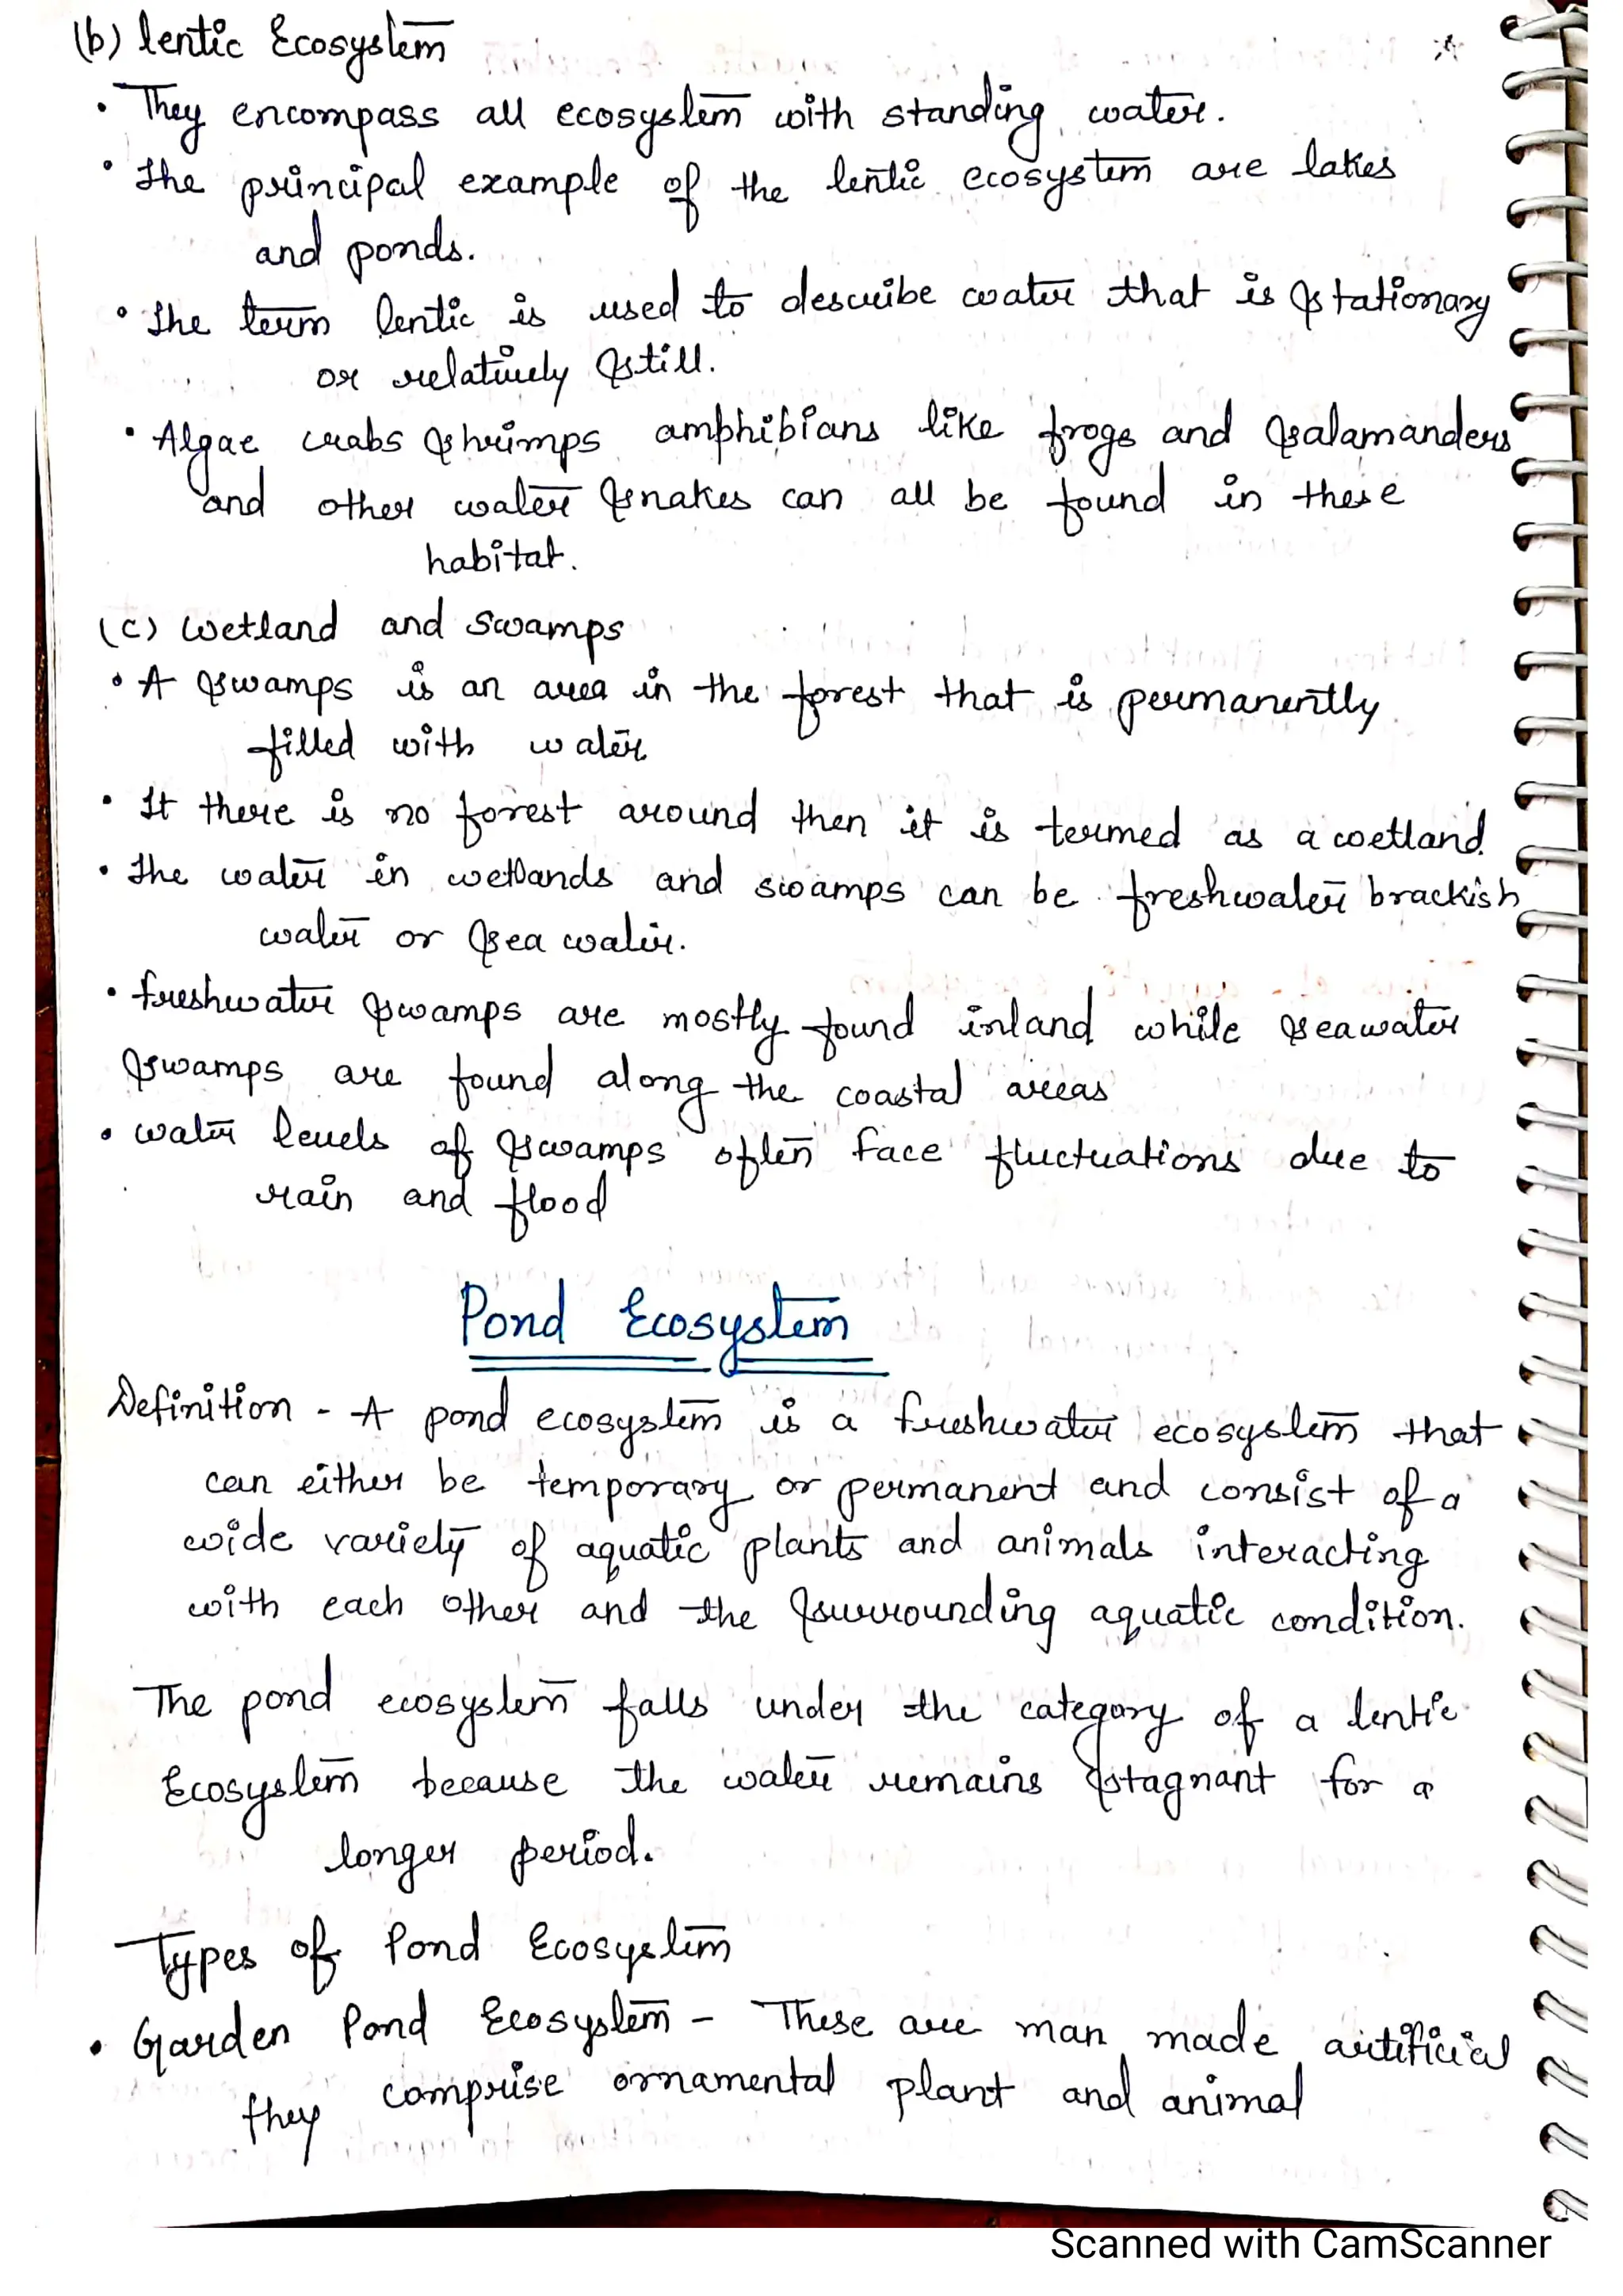 (b) lentic Ecosystem
• They encompass all ecosystem with standing water.
• The principal example of the lentic ecosystem are lakes
and ponds.
• The term lentic is used to describe water that is stationary
or relatively still.
• Algae crabs shrimps amphibians like frogs and salamanders
and other water snakes can all be found in these
habitat.
(c) wetland and swamps
• A swamps is an area in the forest that is permanently
filled with water
• It there is no forest around then it is termed as a wetland.
• The water in wetlands and swamps can be freshwater brackish
water or sea water.
• freshwater swamps are mostly found inland while seawater
swamps are found along the coastal areas
• water levels of swamps often face fluctuations due to
rain and flood
Pond Ecosystem
Definition - A pond ecosystem is a freshwater ecosystem that
can either be temporary or permanent and consist of a
wide variety of aquatic plants and animals interacting
with each other and the surrounding aquatic condition.
The pond ecosystem falls under the category of a lentic
Ecosystem because the water remains stagnant for a
longer period.
Types of Pond Ecosystem
• Garden Pond Ecosystem - These are man made artificial
they comprise ornamental plant and animal
Scanned with CamScanner